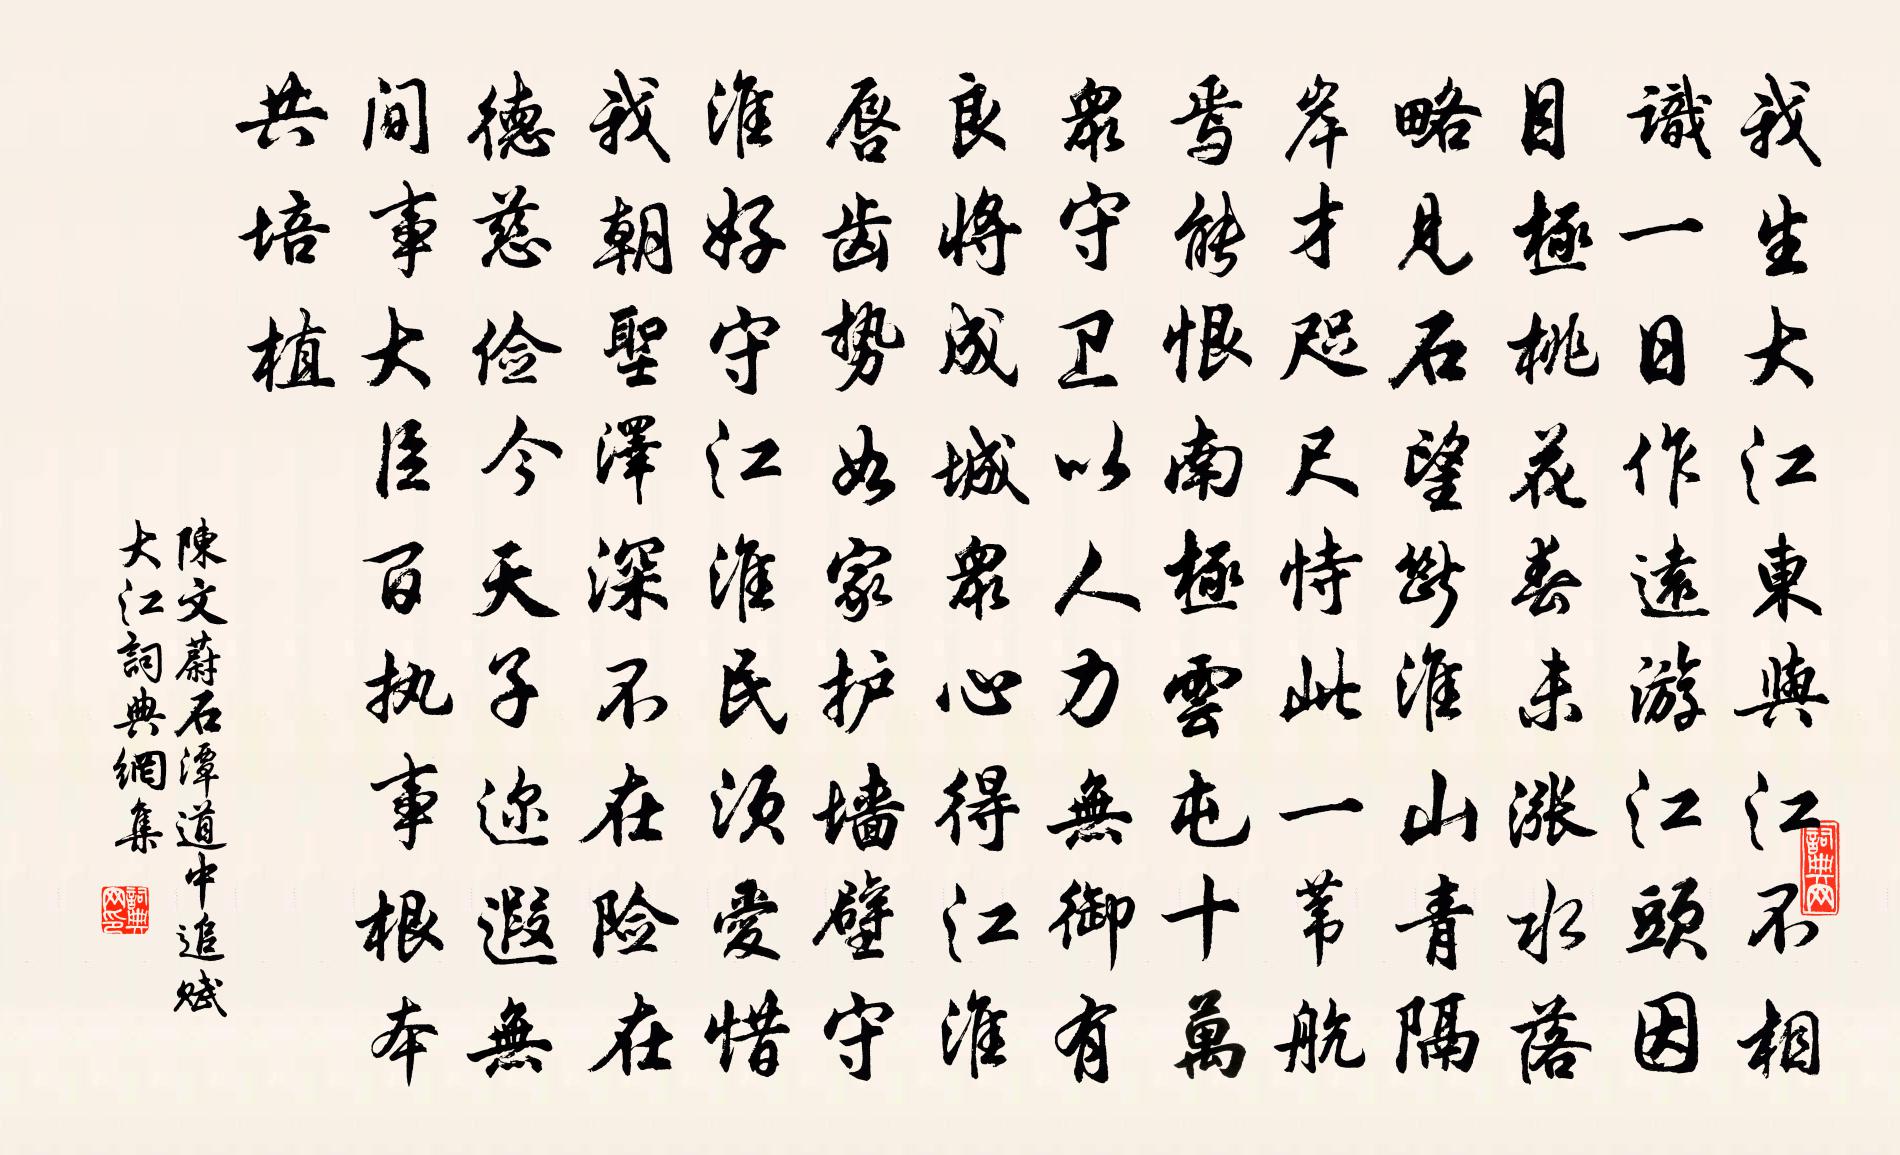 我生大江東與江不相
識一日作遠游江頭因
目極桃花春未漲水落
略見石望斷淮山青隔
岸才咫尺恃此一苇航
焉能恨南極雲屯十萬
眾守卫以人力無御有
良將成城眾心得江淮
唇齿势如家护墙壁守
淮好守江淮民须愛惜
我朝聖澤深不在险在
德慈俭今天子迩遐無
间事大臣百执事根本
共培植
陳文蔚石潭道中追赋
大江詞典網集
詞典网
詞典网印